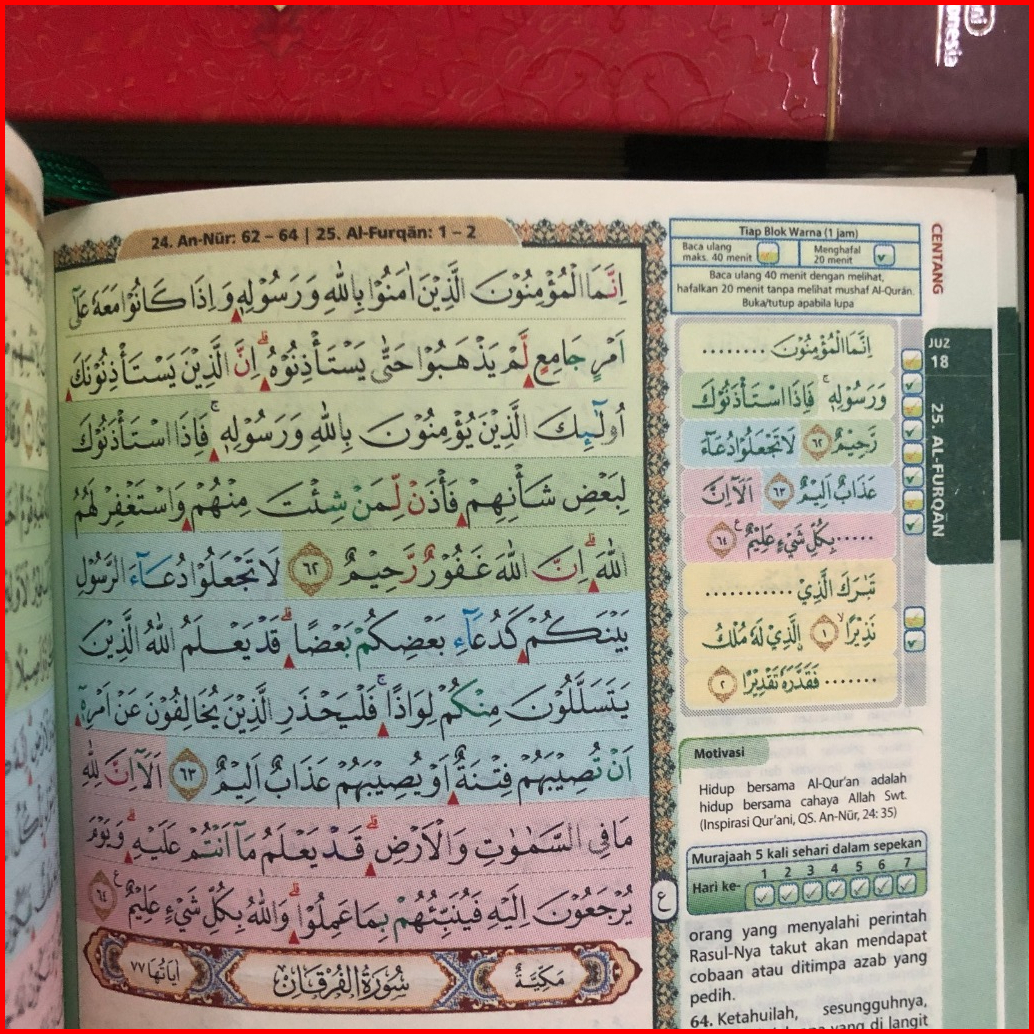 24. An-Nūr: 62 – 64 | 25. Al-Furqān: 1 – 2
اِنَّمَا الْمُؤْمِنُوْنَ الَّذِيْنَ اٰمَنُوْا بِاللّٰهِ وَرَسُوْلِهٖ وَاِذَا كَانُوْا مَعَهٗ عَلٰٓى
اَمْرٍ جَامِعٍ لَّمْ يَذْهَبُوْا حَتّٰى يَسْتَأْذِنُوْهُ ۗاِنَّ الَّذِيْنَ يَسْتَأْذِنُوْنَكَ
اُولٰۤىِٕكَ الَّذِيْنَ يُؤْمِنُوْنَ بِاللّٰهِ وَرَسُوْلِهٖ ۚ فَاِذَا اسْتَأْذَنُوْكَ
لِبَعْضِ شَأْنِهِمْ فَأْذَنْ لِّمَنْ شِئْتَ مِنْهُمْ وَاسْتَغْفِرْ لَهُمُ
اللّٰهَ ۗاِنَّ اللّٰهَ غَفُوْرٌ رَّحِيْمٌ ٦٢ لَا تَجْعَلُوْا دُعَاۤءَ الرَّسُوْلِ
بَيْنَكُمْ كَدُعَاۤءِ بَعْضِكُمْ بَعْضًا ۗقَدْ يَعْلَمُ اللّٰهُ الَّذِيْنَ
يَتَسَلَّلُوْنَ مِنْكُمْ لِوَاذًا ۚ فَلْيَحْذَرِ الَّذِيْنَ يُخَالِفُوْنَ عَنْ اَمْرِهٖٓ
اَنْ تُصِيْبَهُمْ فِتْنَةٌ اَوْ يُصِيْبَهُمْ عَذَابٌ اَلِيْمٌ ٦٣ اَلَآ اِنَّ لِلّٰهِ
مَا فِى السَّمٰوٰتِ وَالْاَرْضِۗ قَدْ يَعْلَمُ مَآ اَنْتُمْ عَلَيْهِۗ وَيَوْمَ
يُرْجَعُوْنَ اِلَيْهِ فَيُنَبِّئُهُمْ بِمَا عَمِلُوْاۗ وَاللّٰهُ بِكُلِّ شَيْءٍ عَلِيْمٌ ࣖ ٦٤
مَكِّيَّةٌ سُوْرَةُ الْفُرْقَانِ اٰيَاتُهَا ٧٧
ع
Tiap Blok Warna (1 jam)
Baca ulang
maks. 40 menit
Menghafal
20 menit
Baca ulang 40 menit dengan melihat,
hafalkan 20 menit tanpa melihat mushaf Al-Qurān.
Buka/tutup apabila lupa
CENTANG
اِنَّمَا الْمُؤْمِنُوْنَ ........
وَرَسُوْلِهٖ ۚ فَاِذَا اسْتَأْذَنُوْكَ
رَّحِيْمٌ ٦٢ لَا تَجْعَلُوْا دُعَاۤءَ
عَذَابٌ اَلِيْمٌ ٦٣ اَلَآ اِنَّ
.....بِكُلِّ شَيْءٍ عَلِيْمٌ ࣖ ٦٤
تَبٰرَكَ الَّذِيْ ...........
نَذِيْرًا ۙ ١ ۨالَّذِيْ لَهٗ مُلْكُ
....... فَقَدَّرَهٗ تَقْدِيْرًا ٢
JUZ
18
25. AL-FURQĀN
Motivasi
Hidup bersama Al-Qur'an adalah
hidup bersama cahaya Allah Swt.
(Inspirasi Qur'ani, QS. An-Nūr, 24: 35)
Murajaah 5 kali sehari dalam sepekan
Hari ke- 1 2 3 4 5 6 7
orang yang menyalahi perintah
Rasul-Nya takut akan mendapat
cobaan atau ditimpa azab yang
pedih.
64. Ketahuilah, sesungguhnya,
yang di langit